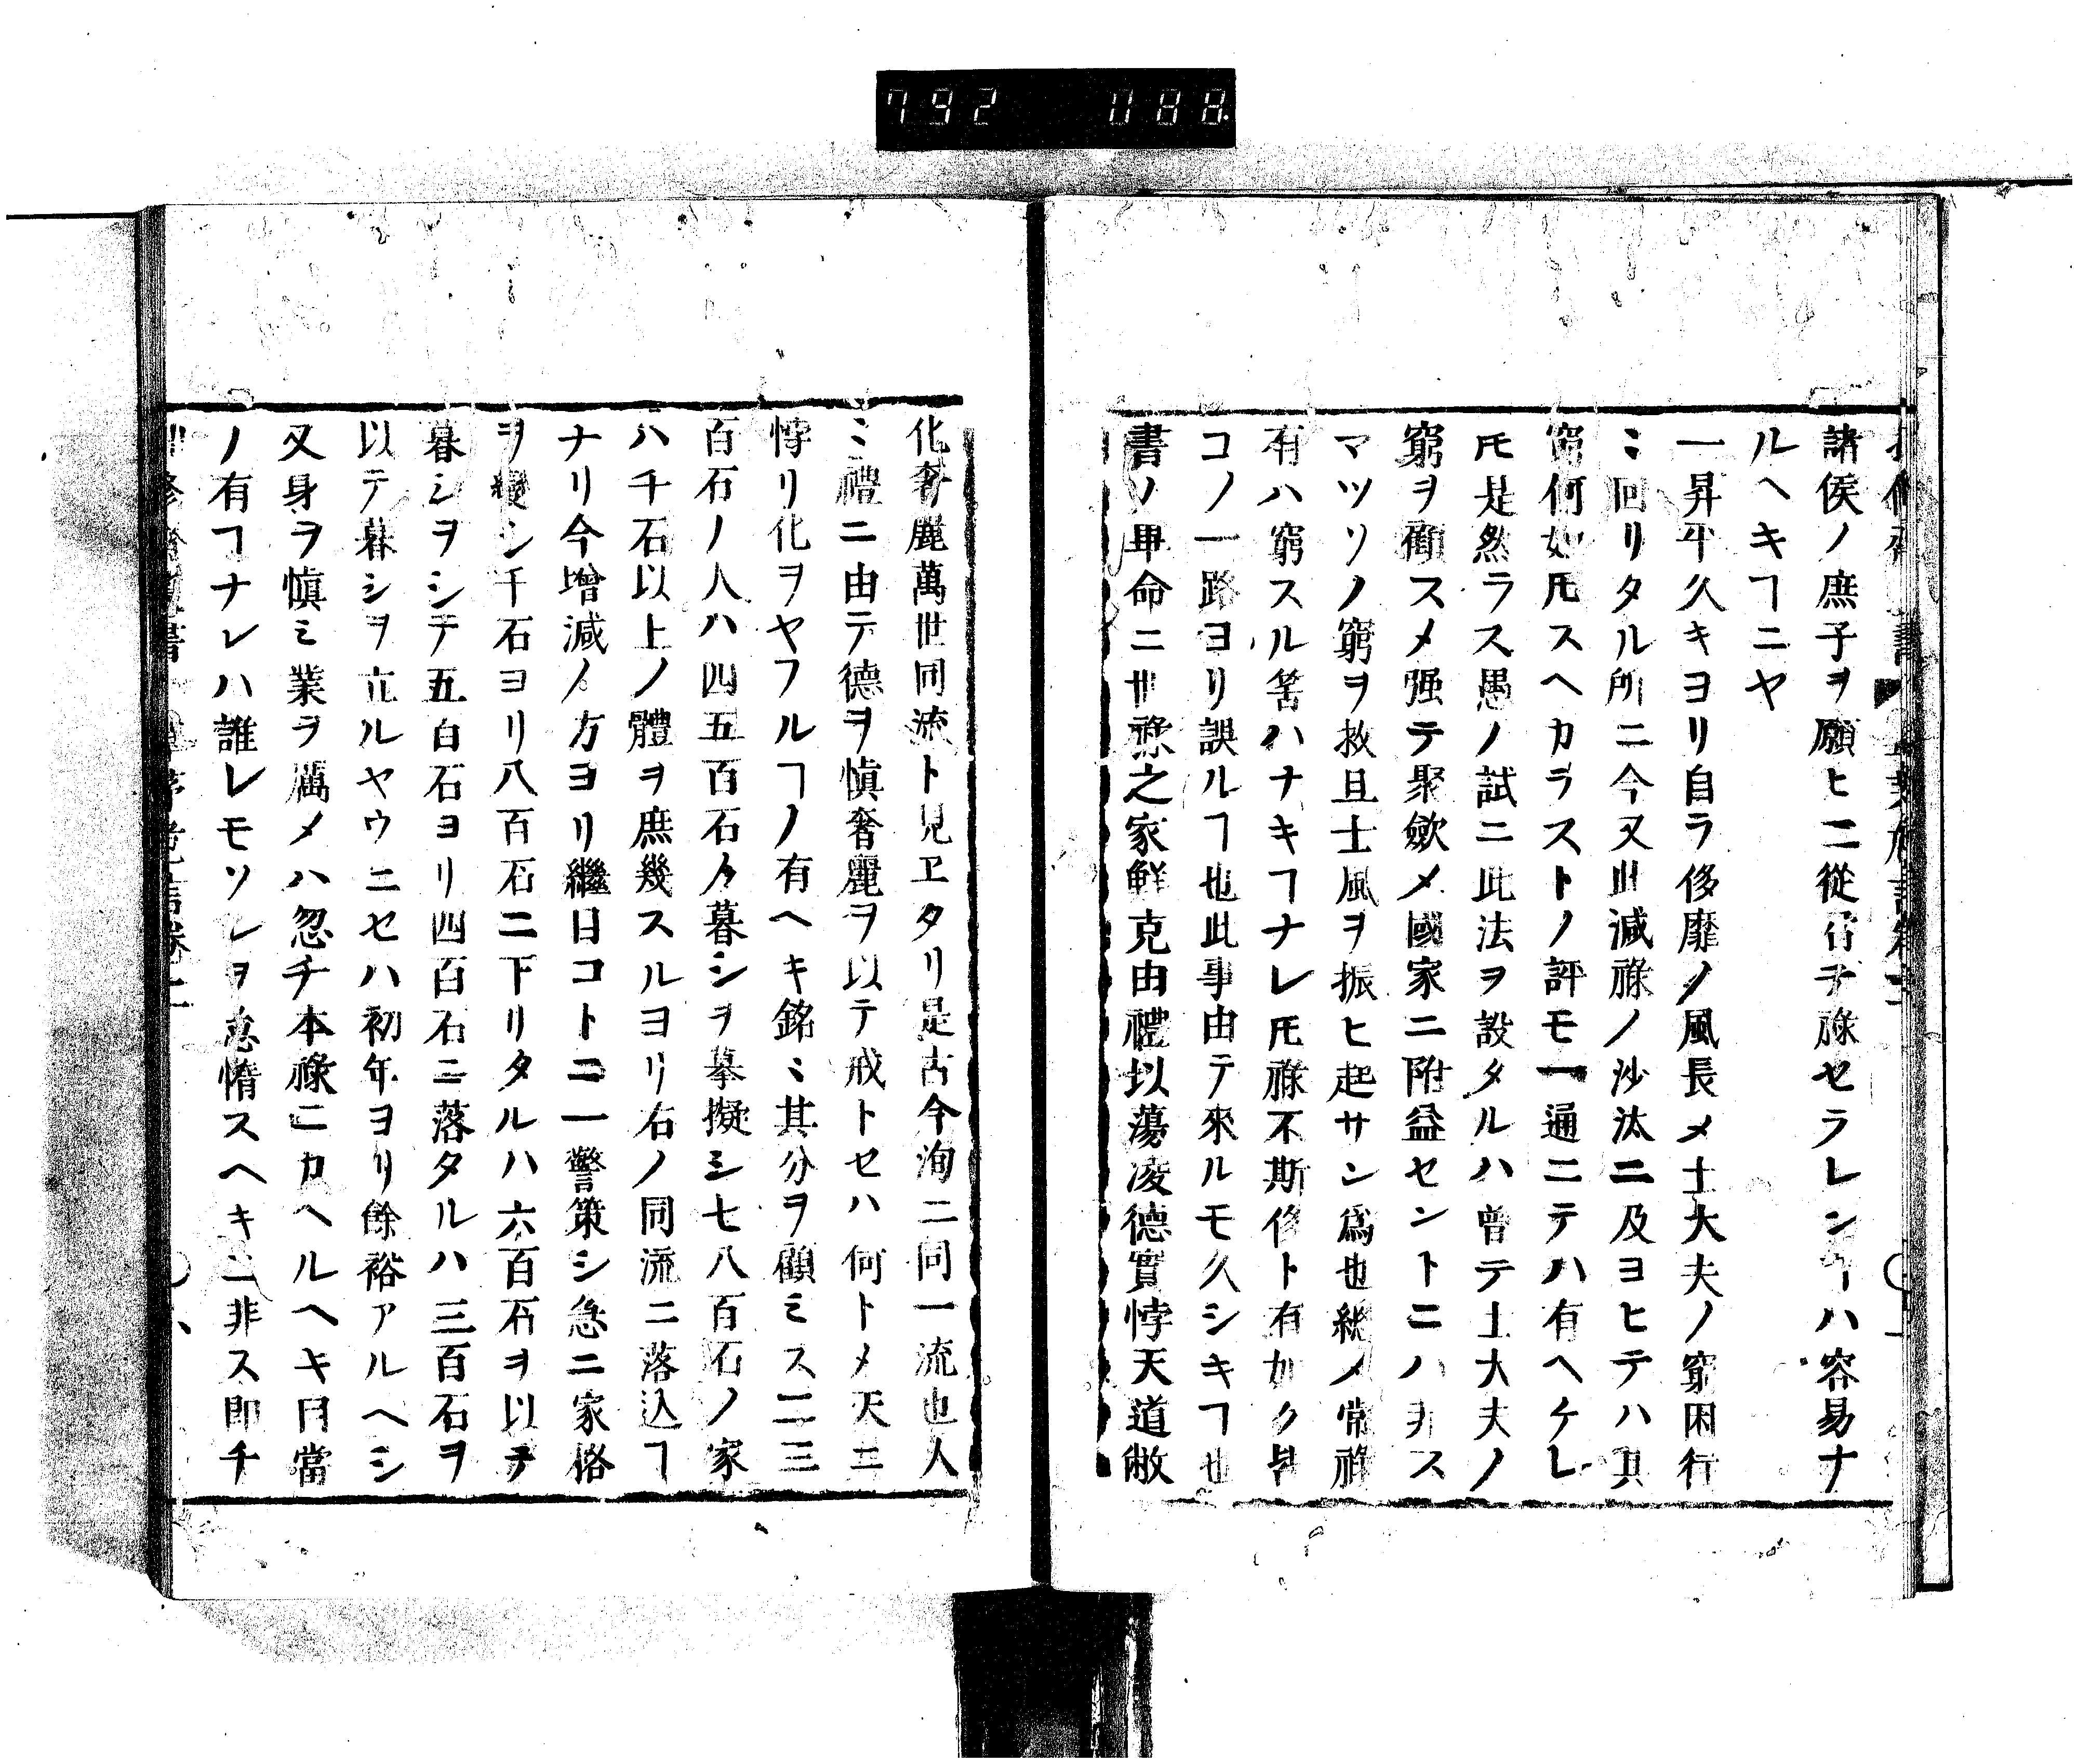 792 088
諸侯ノ庶子ヲ願ヒニ從召テ祿セラレンヿハ容易ナ
ルヘキヿニヤ
一昇平久キヨリ自ラ侈靡ノ風長メ士大夫ノ窮困行
ミ回リタル所ニ今又此減祿ノ沙汰ニ及ヨヒテハ其
窮何如𪜈スヘカラストノ評モ一通ニテハ有ヘケレ
𪜈是然ラス愚ノ試ニ此法ヲ設タルハ曾テ士大夫ノ
窮ヲ衝スメ强テ聚斂メ國家ニ附益セントニハ非ス
マツソノ窮ヲ救且士風ヲ振ヒ起サン爲也総メ常祿
有ハ窮スル筈ハナキヿナレ𪜈祿不斯侈ト有如ク皆
コノ一路ヨリ誤ルヿ也此事由テ來ルモ久シキヿ也
書ノ畢命ニ世祿之家鮮克由禮以蕩凌德實悖天道敝
化奢麗萬世同流ト見ヱタリ是古今洵ニ同一流也人
ミ禮ニ由テ德ヲ愼奢麗ヲ以テ戒トセハ何トメ天ニ
悖リ化ヲヤフルヿノ有ヘキ銘ミ其分ヲ顧ミス二三
百石ノ人ハ四五百石ノ暮シヲ摹擬シ七八百石ノ家
ハ千石以上ノ體ヲ庶幾スルヨリ右ノ同流ニ落込ヿ
ナリ今增減ノ方ヨリ繼目コトニ一警策シ急ニ家格
ヲ變シ千石ヨリ八百石ニ下リタルハ六百石ヲ以テ
暮シヲシテ五百石ヨリ四百石ニ落タルハ三百石ヲ
以テ暮シヲ立ルヤウニセハ初年ヨリ餘裕アルヘシ
又身ヲ愼ミ業ヲ厲メハ忽チ本祿ニカヘルヘキ目當
ノ有ヿナレハ誰レモソレヲ怠惰スヘキニ非ス即チ